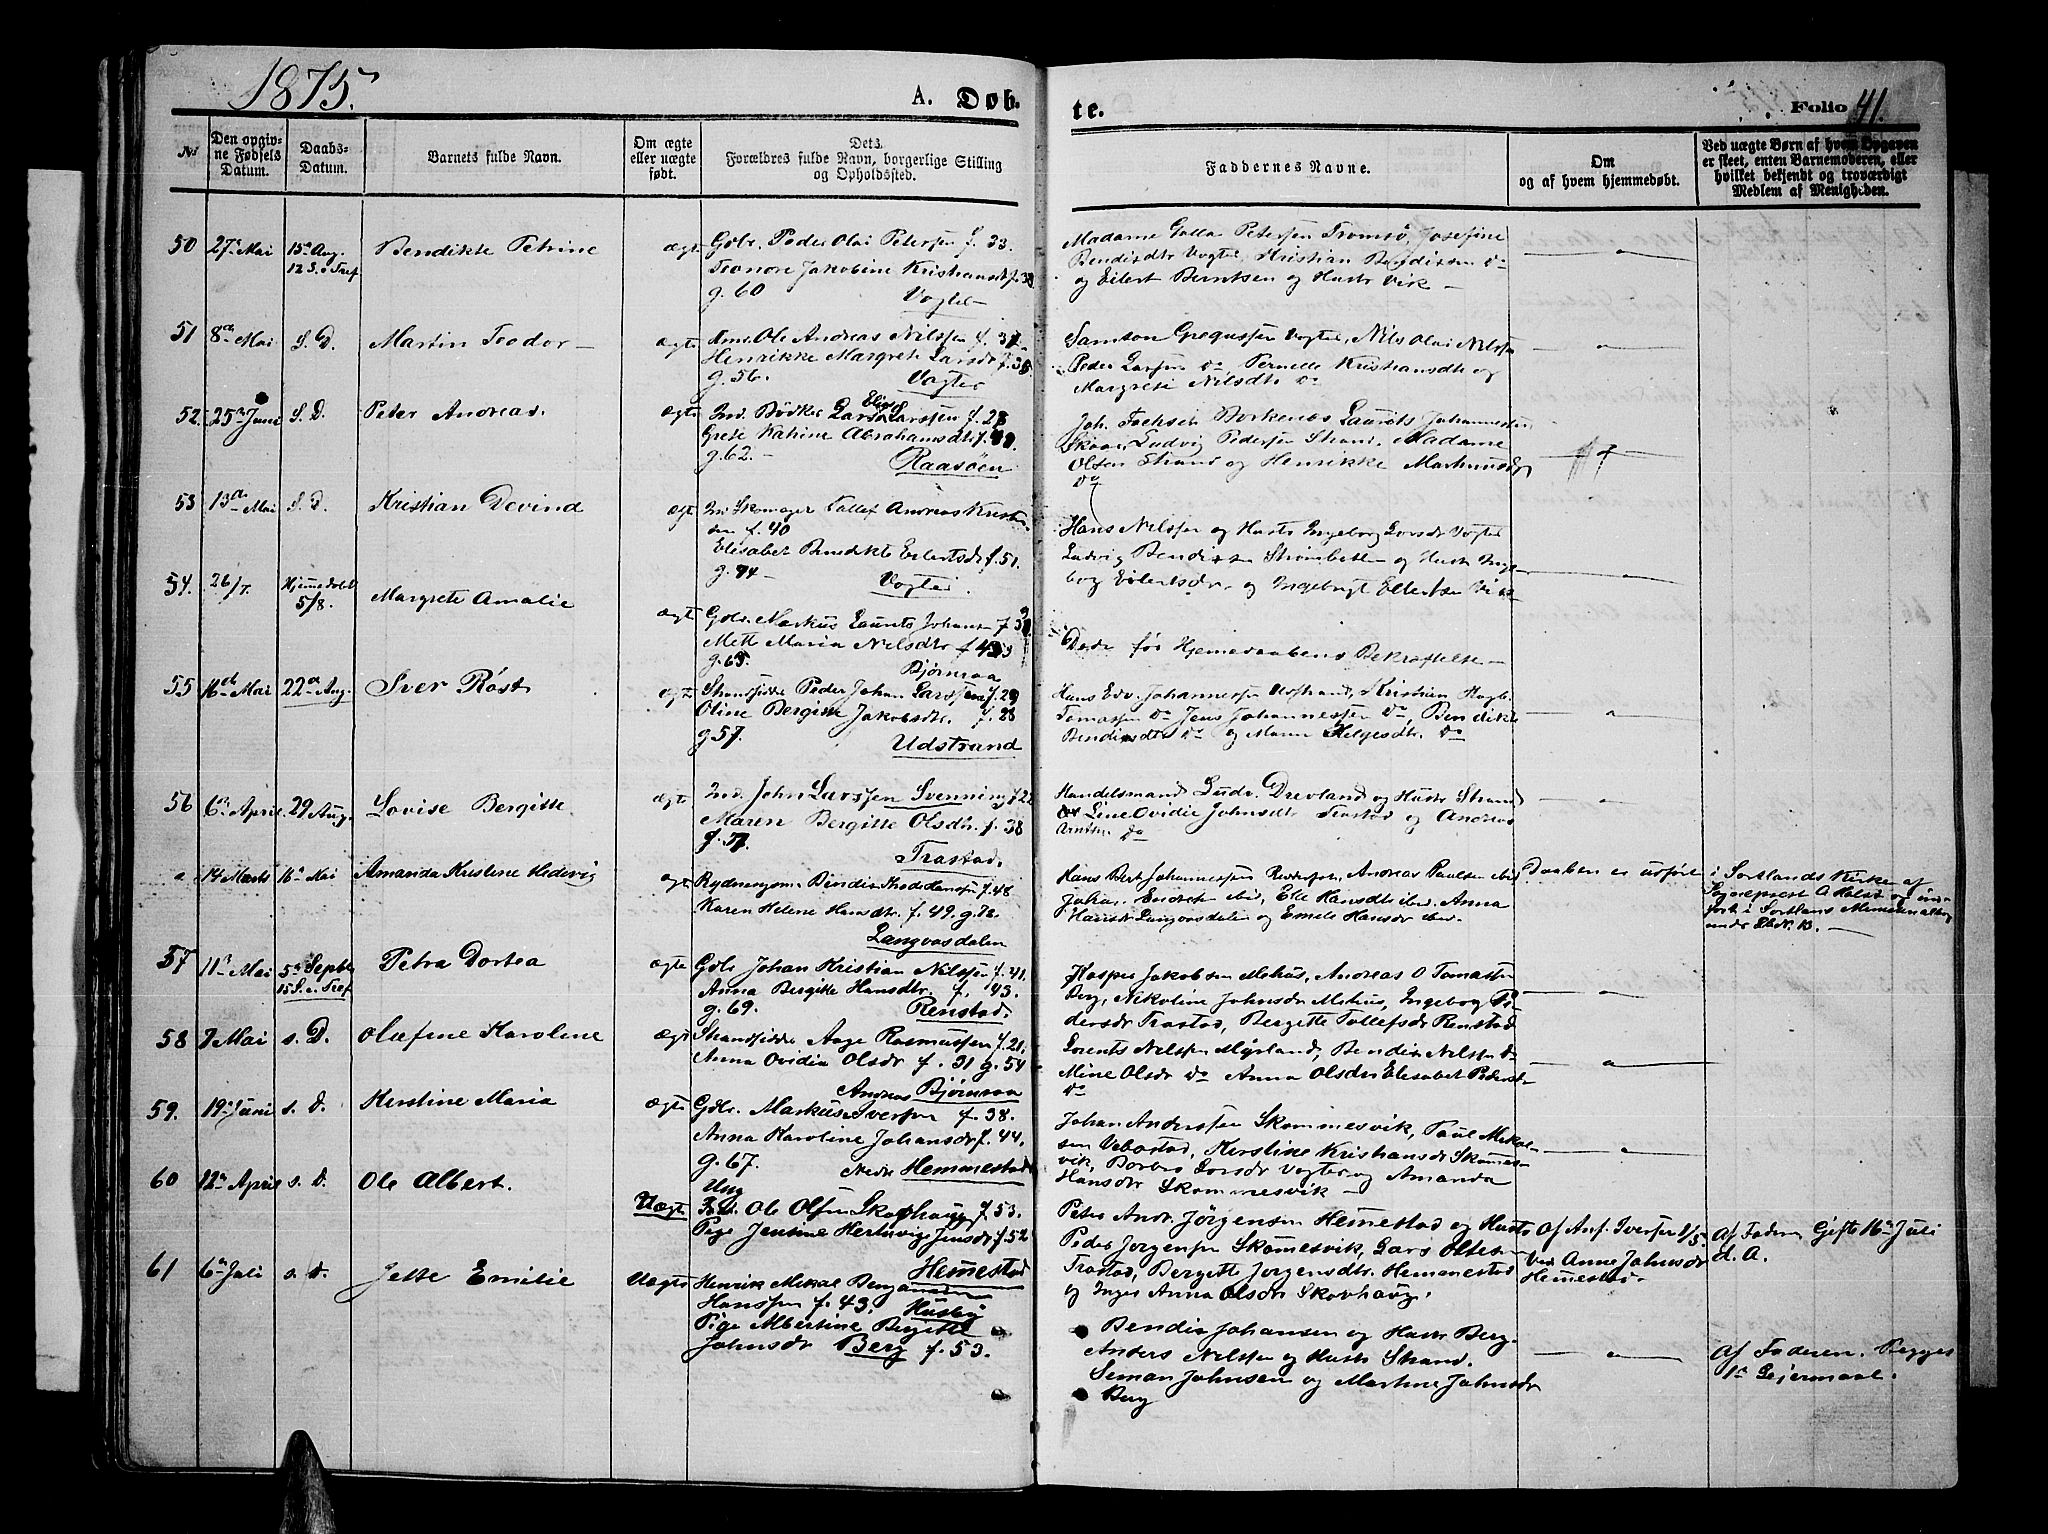 1875.
A. Døb-
te.
Folio 41.
No
Den opgiv-
ne Fødsels
Datum.
Daabs-
Datum.
Barnets fulde Navn.
Om ægte
eller uægte
født.
Dets
Forældres fulde Navn, borgerlige Stilling
og Opholdssted.
Faddernes Navne.
Om
og af hvem hjemmedøbt.
Ved uægte Børn af hvem Opgaven
er skeet, enten Barnemoderen, eller
hvilket bekjendt og troværdigt
Medlem af Menigheden.
50 27de Mai 15de Aug.
12 S. e. Tref
Bendikte Petrine
ægte
Gdbr. Peder Olai Petersen f. 33.
Jakobine Kristiansdt f. 38
g. 60
Vogtei
Madame Petersen Tromsö, Josefine
Bendixdtr Vogtei, Kristian Bendixsen do
og Eilert Berntsen og Hustr Vik –
51 8de Mai S. D.
Martin Teodor –
ægte
Ole Andreas Nilssen f. 31
Henrikke Margrete Larsdtr f. 35
g. 56.
Vogtei
Samson Gregussen Vogtei, Nils Olai Nilssen
Peder Larsen do, Pernelle Kristiansdtr og
Margrete Nilsdtr do
52. 25de Juni S. D.
Peter Andreas.
ægte
Ind. Bödker Lars Elias Larssen f. 28
Grete Katrine Abrahamsdtr f. 41.
g. 62. –
Raasöen
Joh. Borkenes Laurits Johannessen
Skaar, Ludvig Pedersen Strand, Madame
Olsen Strand og Henrikke
do
53 13de Mai S. D.
Kristian Devind
ægte
Ind. Skomager Tollef Andreas Kristen-
sen f. 40
Elisabet Benedikte Eilertsdtr f. 51.
g. 74 –
Vogtei.
Hans Nilssen og Hustr Ingeborg Larsdtr Vogtei
Ludvig Bendixsen og Hustr Inge-
borg Eilertsdtr. og Ingebrigt Ellertsen Vik
54. 26/7 Hjemmedøbt
5/8.
Margrete Amalie
ægte
Gdbr. Markus Laurits Johansen f. 32
Mett Maria Nilsdtr f. 43
g. 65.
Bjørnraa
Døde før Hjemmedaabens Bekræftelse –
55 16de Mai 22de Aug.
Sver Röst
ægte
Strandsidder Peder Johan Larssen f. 29
Oline Bergitte Jakobsdtr. f. 28
g. 57.
Udstrand
Hans Edv. Johannessen Udstrand, Kristian Hagb.
Tomassen do Jens Johannessen do, Bendikte
Bendixsdtr do og Maren Helgesdtr. do
56 6te April 29 Aug.
Lovise Bergitte
ægte
Ind. John Larssen Svenning f. 22
Maren Bergitte Olsdtr. f. 38
Trastad.
Handelsmand Ludv. Drevland og Hustr Strand
Line Ovidie Johnsdtr Trastad og Andreas
do
a 14 Marts 16de Mai
Amanda Kristine Hedevig
ægte
Rydningsm. Bendix f. 48
Karen Helene Hansdtr. f. 49. g. 72.
Langvasdalen
Hans Johannessen, Andreas Paulsen ibid
Johan Endresen ibid, Elle Hansdtr ibid. Anna
Hansdtr Langvasdalen og Emelie Hansdtr ibid.
Daaben er udført i Sortlands Kirke af
Sogneprest A Holst og ind-
ført i Sortlands Ministerialbog
under Lb.N. 13. –
57 11te Mai 5te Septbr
15 S. e. Tref
Petra Dortea
ægte
Gdbr Johan Kristian Nilssen f. 41.
Anna Bergitte Hansdtr. f. 43.
g. 69.
Renstad.
Kasper Jakobsen Mehus, Andreas O Tomassen
Berg, Nikoline Johnsdr Mehus, Ingeborg Pe-
dersdr Trastad, Bergette Tollefsdr Renstad
58 7 Mai s. D.
Olufine Karoline
ægte
Strandsidder Aage Rasmussen f. 21.
Anna Ovidia Olsdr f. 31 g. 54
Bjørnraa
Lorents Nilssen Myrland, Bendix Nilssen do
Mine Olsdr do Anna Olsdr Elisabet Pedersdr
do
59. 19de Juni s. d.
Kerstine Maria
ægte
Gdbr. Markus Andreas Iversen f. 38.
Anna Karoline Johansdr f. 44.
g. 67.
Nedre Hemmestad
Johan Anderssen Skommesvik, Paul Mekal-
sen Vebostad, Kerstine Kristiansdr Skommes-
vik, Barbro Larsdr Vogtei og Amanda
Hansdtr Skommesvik –
60 12te April s. D.
Ole Albert.
Uægte
Ung
Ole Olsen Skovhaug f. 53.
Pige Jensine Hertuvige Jensdr f. 52
Hemmestad
Peter Andr. Jörgensen Hemmestad og Hustr
Peder Jorgensen Skommesvik, Lars Oltesen
Trastad, Bergette Jorgensdtr. Hemmestad
og Inger Anna Olsdr Skovhaug.
Af Anf. Iversen 2/5
Ved Anne Johnsdr
Hemmestad.
Af Faderen Gifte 16de Juli
d. A.
61 6te Juli s. d.
Jette Emilie
Uægte
Henrik Mekal Bergiansen
Hanssen f. 43. Husby
Pige Albertine Bergitte
Johnsdr Berg f. 53.
Bendix Johansen og Hustr Berg.
Anders Nilssen og Hustr Strand.
Seman Johnsen og Martine Johnsdr
Berg
Af Faderen. Begges
1ste Leiermaal.